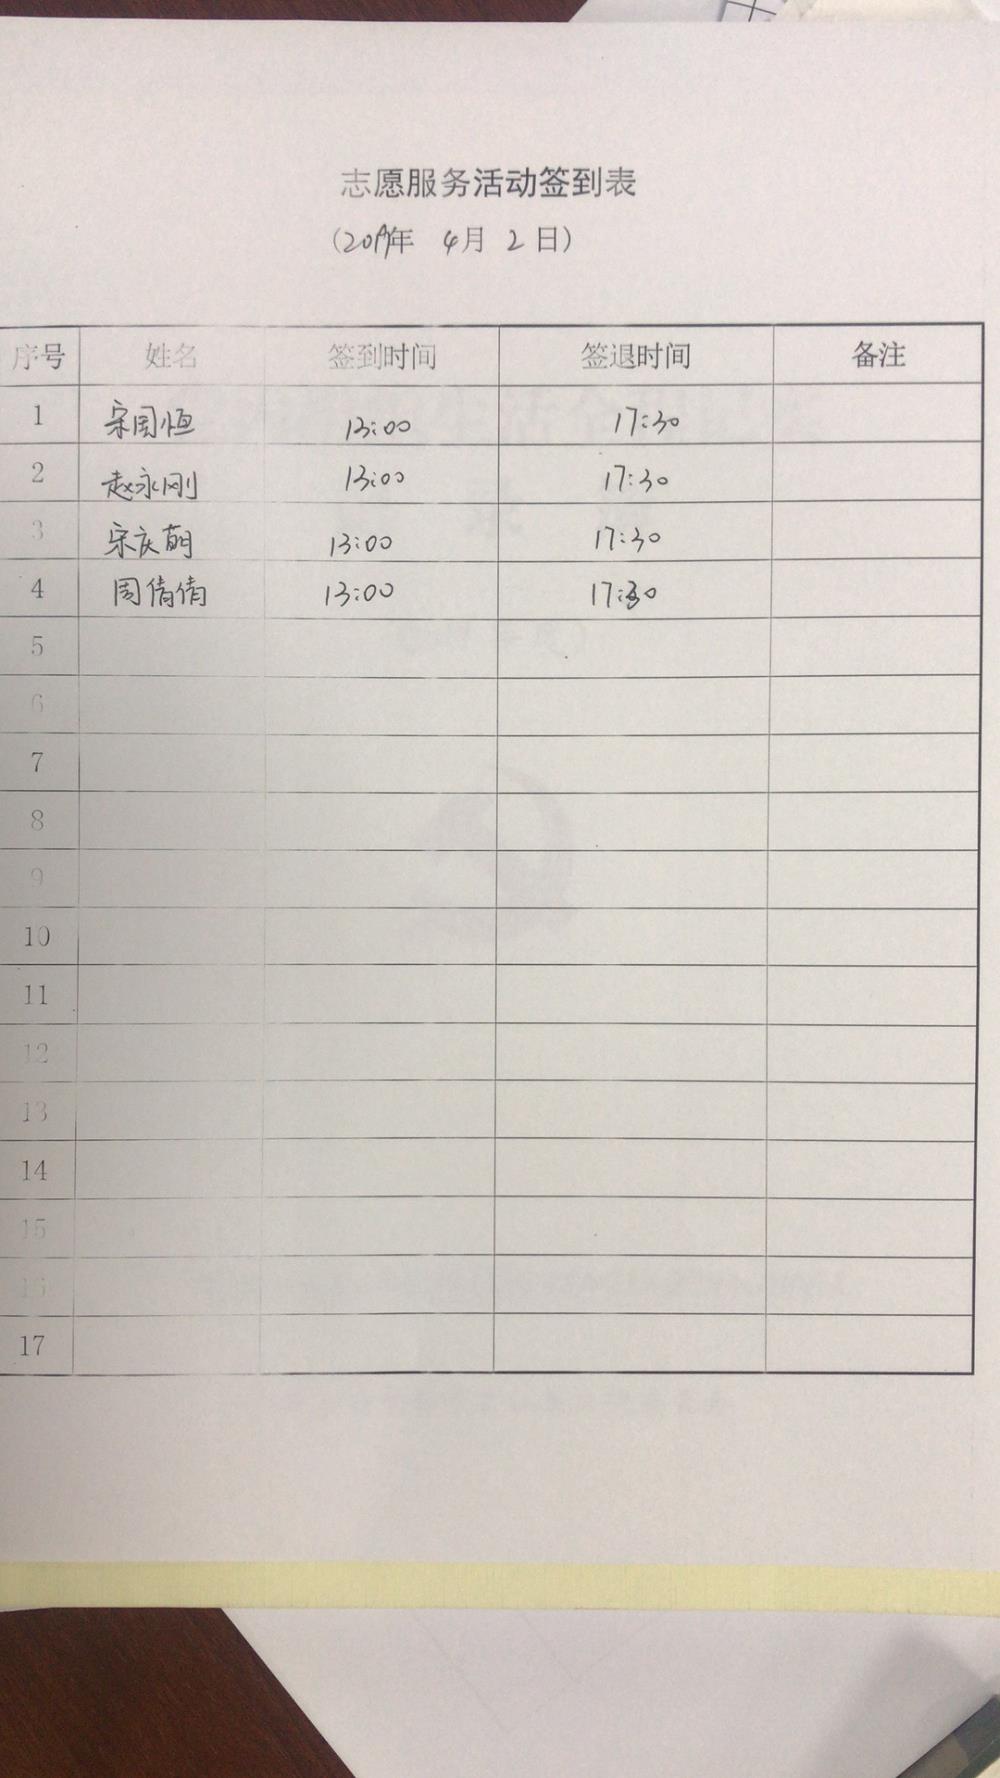 志愿服务活动签到表
(2019年 4月 2日)
序号 姓名 签到时间 签退时间 备注
1 宋国恒 13:00 17:30
2 赵永刚 13:00 17:30
3 宋庆萌 13:00 17:30
4 周倩倩 13:00 17:30
5
6
7
8
9
10
11
12
13
14
15
16
17